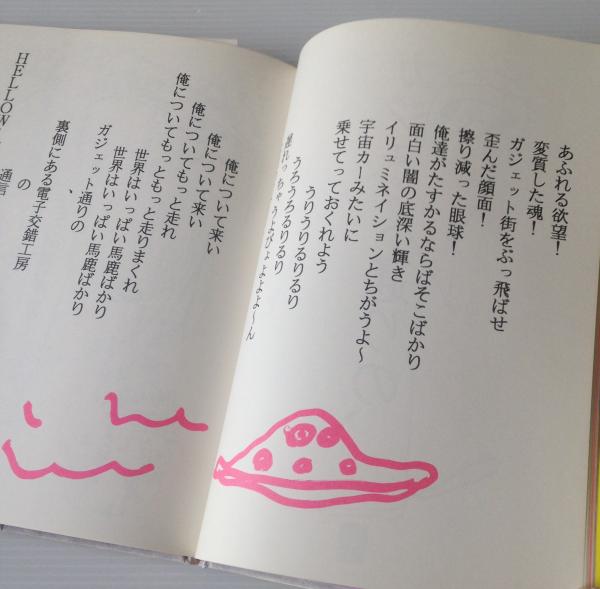 あふれる欲望！
変質した魂！
ガジェット街をぶっ飛ばせ
歪んだ顔面！
擦り減った眼球！
俺達がたすかるならばそこばかり
面白い闇の底深い輝き
イリュミネイションとちがうよ〜
宇宙カーみたいに
乗せてっておくれよう
うりうりるりるり
うろうろるりるり
れっちゃうよぴょよよよ〜ん
俺について来い
俺について来い
俺についてもっと走れ
俺についてもっともっと走りまくれ
世界はいっぱい馬鹿ばかり
世界はいっぱい馬鹿ばかり
ガジェット通りの、
裏側にある電子交錯工房
の
HELLOW 通信